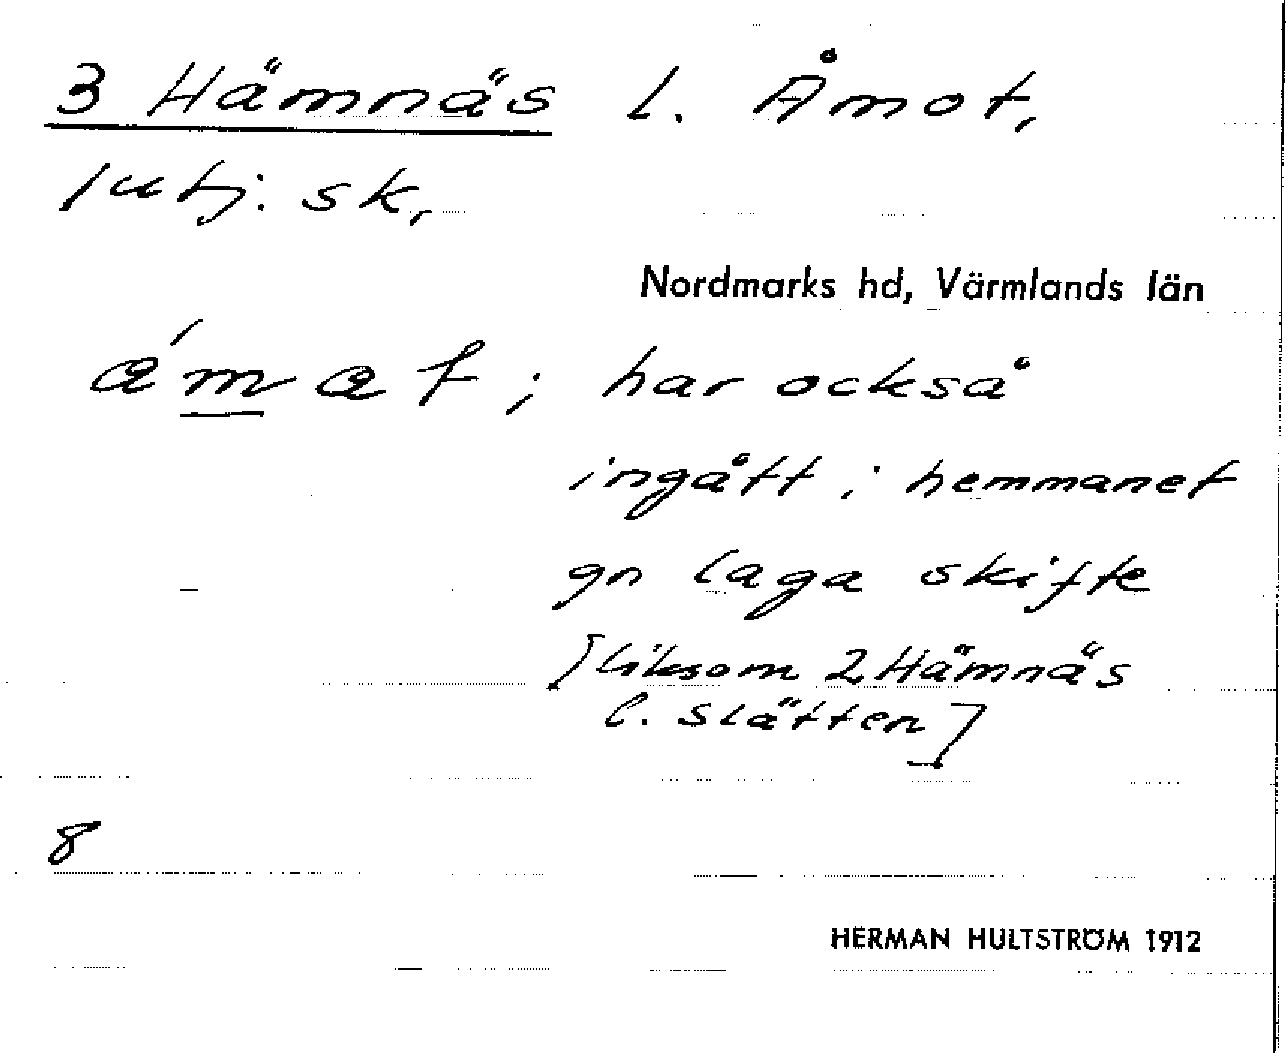 3 Hämnäs l. Åmot,
1 utj. sk,
Nordmarks hd, Värmlands län
a´mat; har också
ingått i hemmanet
gn laga skifte
[liksom 2 Hämnäs
l. Slätten]
8
HERMAN HULTSTRÖM 1912